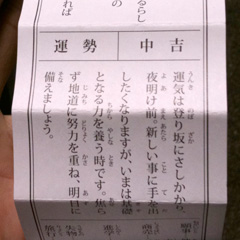 るらし
の
れば
運勢
中吉
運気は登り坂にさしかかり、
夜明け前。新しい事に手を出
したくなりますが、いまは基礎
となる力を養う時です。焦ら
ず地道に努力を重ね、明日に
備えましょう。